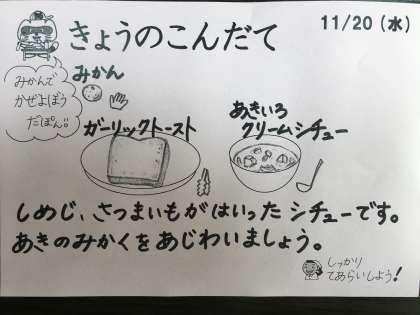 きょうのこんだて
11/20 (水)
みかんで
かぜよぼう
だぽん!!
みかん
ガーリックトースト
あきいろ
クリームシチュー
しめじ、さつまいもがはいったシチューです。
あきのみかくをあじわいましょう。
しっかり
てあらいしよう!